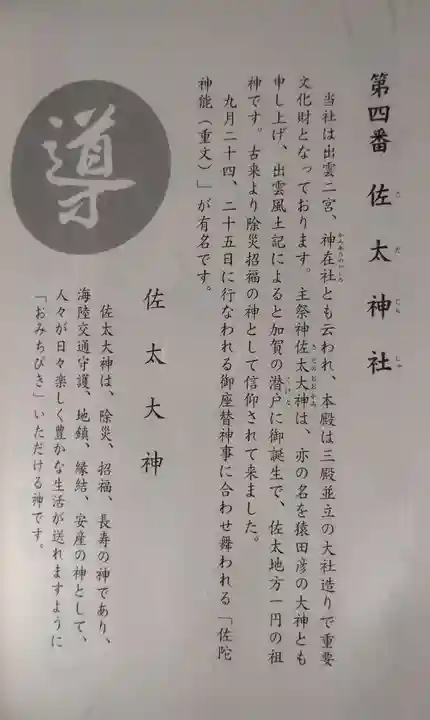 第四番 佐太神社
さだじんじゃ
当社は出雲二宮、神在社とも云われ、本殿は三殿並立の大社造りで重要
かみありのやしろ
文化財となっております。主祭神佐太大神は、亦の名を猿田彦の大神とも
さだのおおかみ
申し上げ、出雲風土記によると加賀の潜戸に御誕生で、佐太地方一円の祖
くけど
神です。古来より除災招福の神として信仰されて来ました。
九月二十四、二十五日に行なわれる御座替神事に合わせ舞われる「佐陀
神能（重文）」が有名です。
導
佐太大神
佐太大神は、除災、招福、長寿の神であり、
海陸交通守護、地鎮、縁結、安産の神として、
人々が日々楽しく豊かな生活が送れますように
「おみちびき」いただける神です。